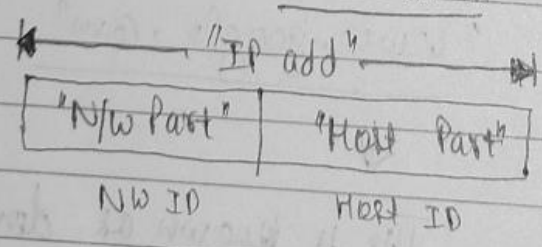 "IP add"
"N/W Part" "Host Part"
NW ID Host ID